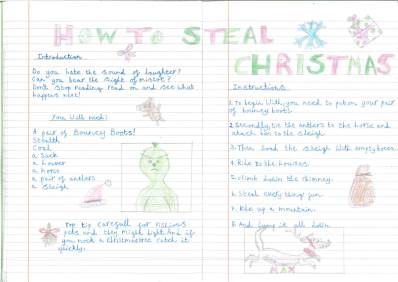 HOW TO STEAL CHRISTMAS
Introduction
Do you hate the sound of laughter?
Can you bear the sight of
Dont stop reading read on and see what
happens next!
You Will need:
A pair of Bouncy Boots!
Stealth
Coal
a Sack
a
a horse
a pair of antlers
a Sleigh
Top tip carefull for
pets and they might bight. And if
you nock a christmastree catch it
quickly.
Instructions
1. To begin with, you need to put on your pair
of bouncy boots.
2. Secondly, tie the antlers to the horse and
attach him to the sleigh.
3. Then load the sleigh with empty boxes.
4. Ride to the houses.
5. Climb down the chimney.
6. Steal every thing fun.
7. Ride up a mountain.
8. And it all down.
MAX